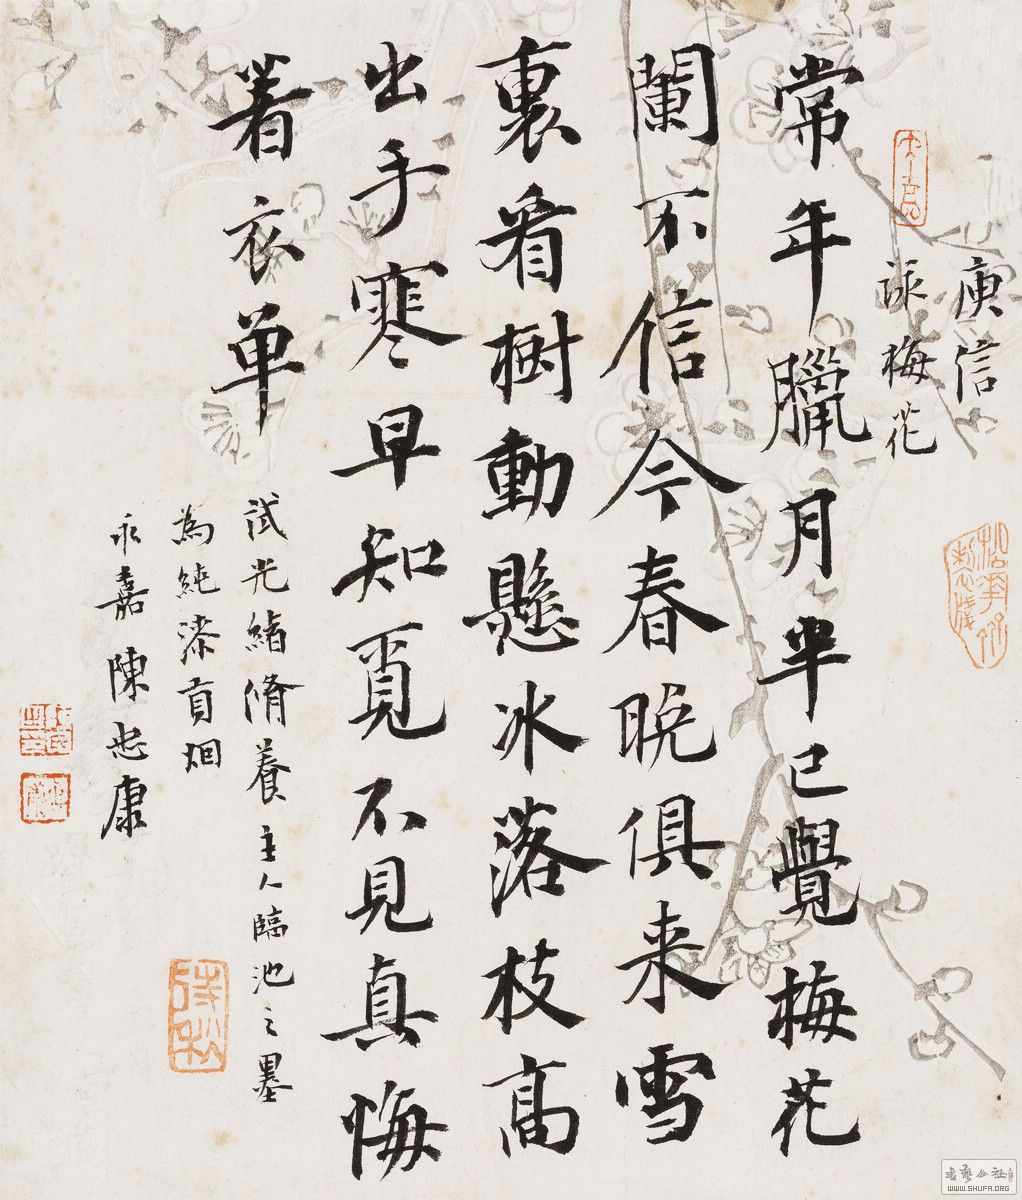 庾信
詠梅花
常年臘月半已覺梅花
闌不信今春晚俱来雪
裏看樹動懸冰落枝高
出手寒早知覓不見真悔
著衣单
試光緒脩養主人臨池之墨
為純漆貢烟
永嘉陳忠康
WWW.SHUFA.ORG